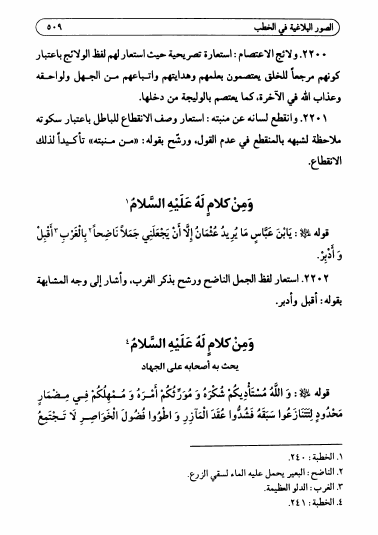 الصور البلاغية في الخطب
٥٠٩
٢٢٠٠. ولائج الاعتصام: استعارة تصريحية حيث استعار لهم لفظ الولائج باعتبار
كونهم مرجعاً للخلق يعتصمون بعلمهم وهدايتهم واتباعهم مـن الجهل ولواحقه
وعذاب الله في الآخرة، كما يعتصم بالوليجة من دخلها.
٢٢٠١. وانقطع لسانه عن منبته: استعار وصف الانقطاع للباطل باعتبار سكوته
ملاحظة لشبهه بالمنقطع في عدم القول، ورشّح بقوله: «مـن منبته» تأكيـداً لذلك
الانقطاع.
وَمِنْ كَلامٍ لَهُ عَلَيْهِ السَّلامُ ١
قوله ﷺ: يَابْنَ عَبَّاسٍ مَا يُرِيدُ عُثْمَانُ إِلَّا أَنْ يَجْعَلَنِي جَمَلاً نَاضِحاً ٢ بِالْغَرْبِ ٣ أَقْبِلْ
وَ أَدْبِرْ.
٢٢٠٢. استعار لفظ الجمل الناضح ورشح بذكر الغرب، وأشار إلى وجه المشابهة
بقوله: أقبل وأدبر.
وَمِنْ كَلامٍ لَهُ عَلَيْهِ السَّلامُ ٤
يحث به أصحابه على الجهاد
قوله ﷺ: وَ اللَّهُ مُسْتَأْدِيكُمْ شُكْرَهُ وَ مُوَرِّثُكُمْ أَمْرَهُ وَ مُمْهِلُكُمْ فِـي مِضْمَارٍ
مَحْدُودٍ لِتَتَنَازَعُوا سَبَقَهُ فَشُدُّوا عُقَدَ الْمَآزِرِ وَ اطْوُوا فُضُولَ الْخَوَاصِرِ لَا تَجْتَمِعُ
١. الخطبة: ٢٤٠.
٢. الناضح: البعير يحمل عليه الماء لسقي الزرع.
٣. الغرب: الدلو العظيمة.
٤. الخطبة: ٢٤١.